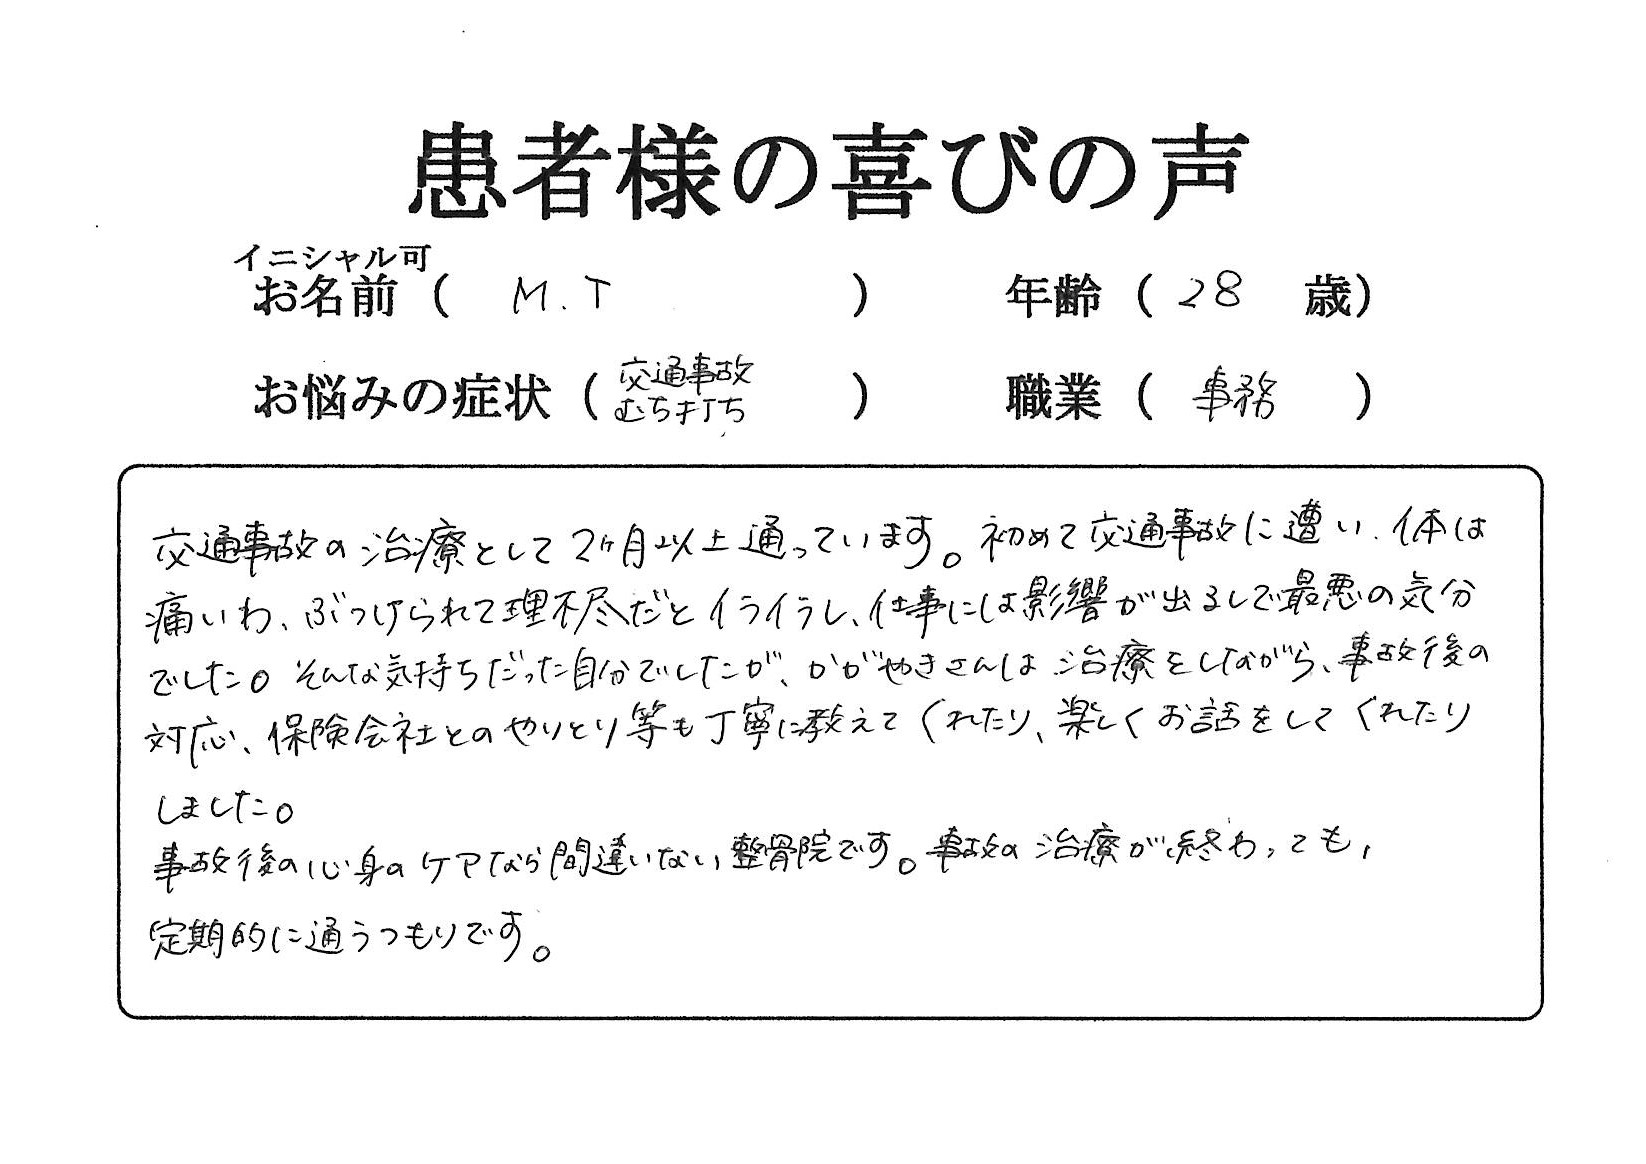 患者様の喜びの声
イニシャル可
お名前 ( M.T ) 年齢 ( 28 歳)
お悩みの症状 ( 交通事故 むち打ち ) 職業 ( 事務 )
交通事故の治療として2ヶ月以上通っています。初めて交通事故に遭い、体は
痛いわ、ぶつけられて理不尽だとイライラし、仕事には影響が出るしで最悪の気分
でした。そんな気持ちだった自分でしたが、かがやきさんは治療をしながら、事故後の
対応、保険会社とのやりとり等も丁寧に教えてくれたり、楽しくお話をしてくれたり
しました。
事故後の心身のケアなら間違いない整骨院です。事故の治療が終わっても、
定期的に通うつもりです。